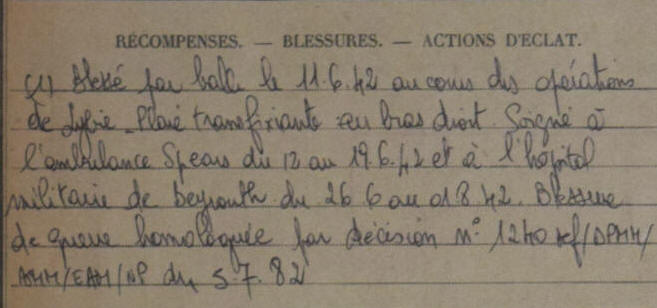 RÉCOMPENSES. — BLESSURES. — ACTIONS D'ECLAT.
(1) Blessé par balle le 11.6.42 au cours des opérations
de Lybie - Plaie transfixiante au bras droit. Soigné à
l'ambulance Spears du 12 au 19.6.42 et à l'hôpital
militaire de beyrouth du 26 6 au 018 42. Blessure
de guerre homologuée par décision n° 1240 ref/DPMM/
/EAM/ du 5.7.82